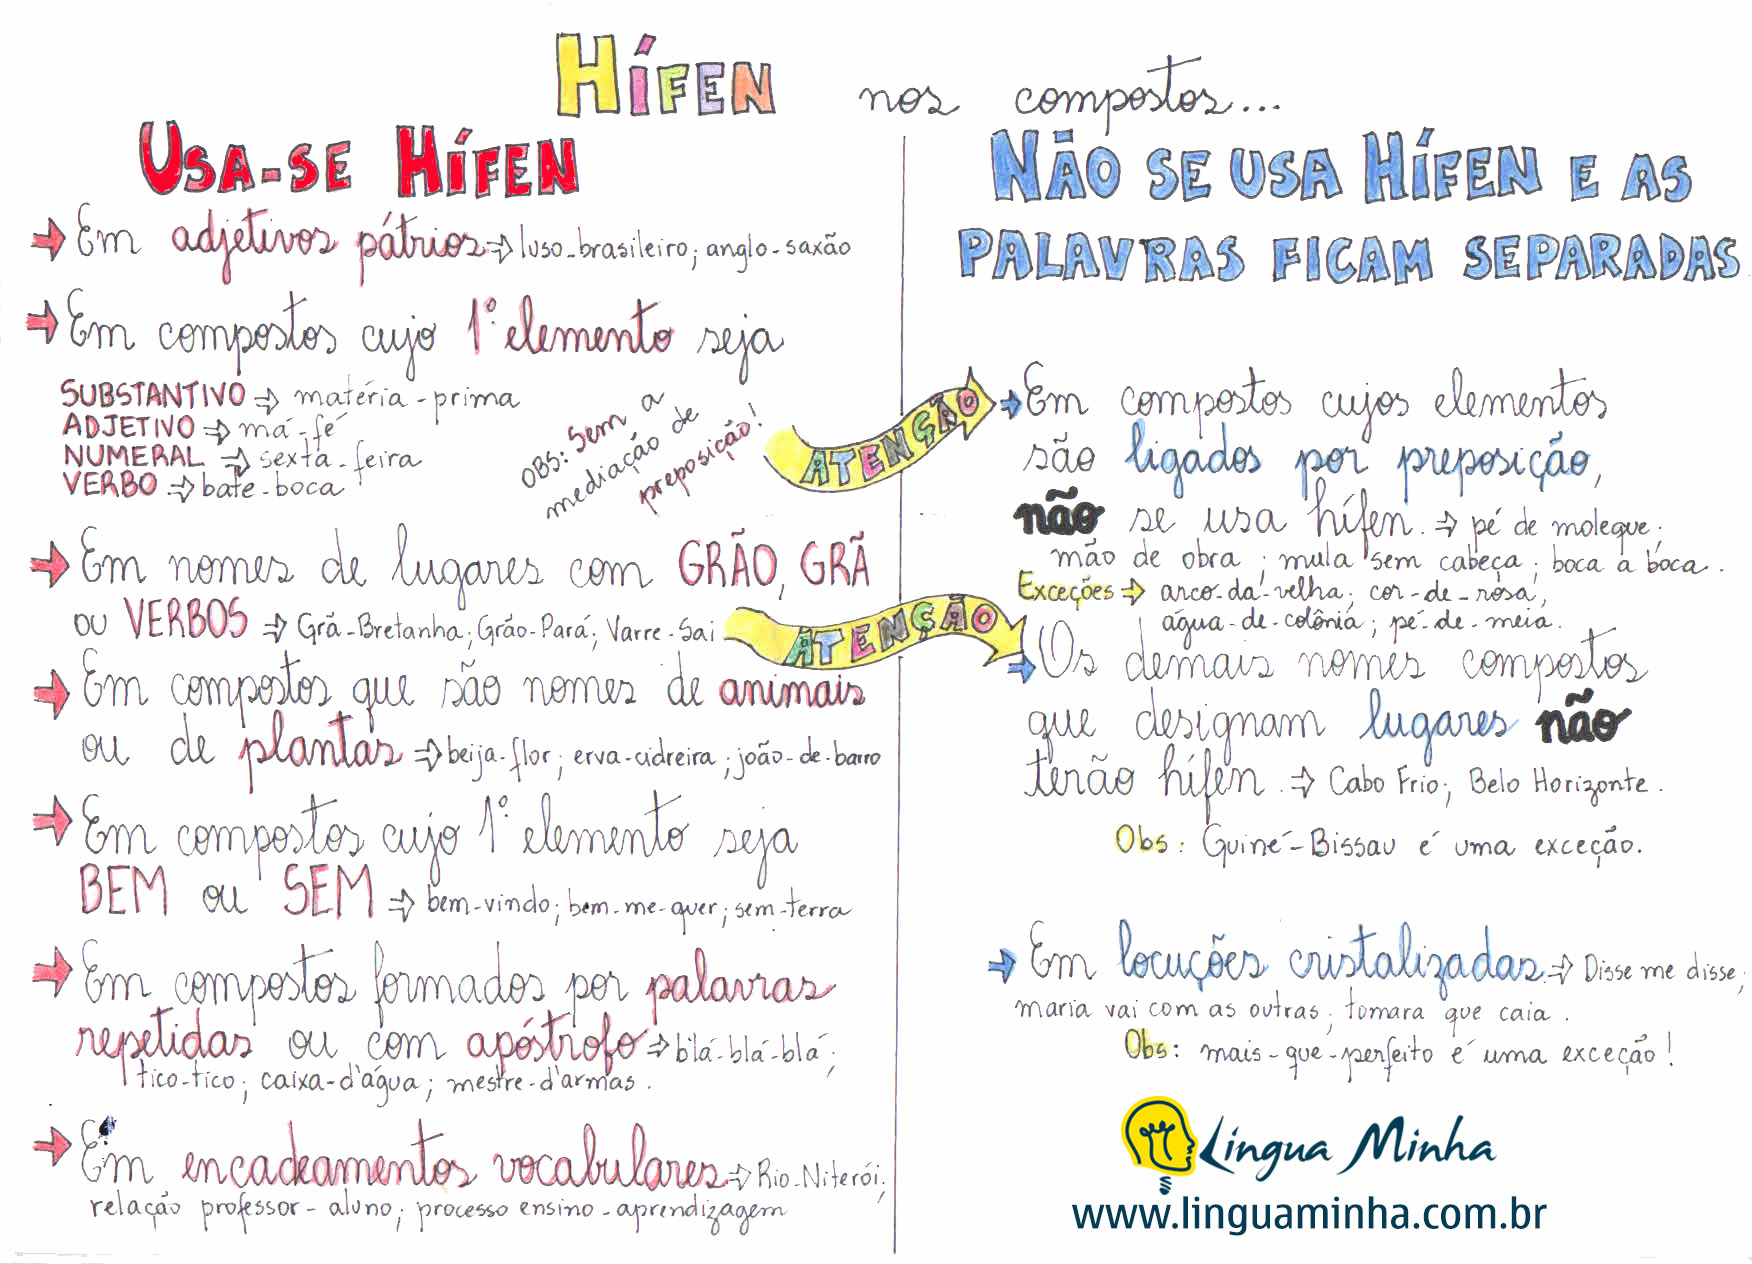 HÍFEN nos compostos...
USA-SE HÍFEN
Em adjetivos pátrios ⇒ luso-brasileiro; anglo-saxão
Em compostos cujo 1º elemento seja
SUBSTANTIVO ⇒ matéria-prima
ADJETIVO ⇒ má-fé
NUMERAL ⇒ sexta-feira
VERBO ⇒ bate-boca
OBS: Sem a
mediação de
preposição!
Em nomes de lugares com GRÃO, GRÃ
ou VERBOS ⇒ Grã-Bretanha; Grão-Pará; Varre-Sai
Em compostos que são nomes de animais
ou de plantas ⇒ beija-flor; erva-cidreira; joão-de-barro
Em compostos cujo 1º elemento seja
BEM ou SEM ⇒ bem-vindo; bem-me-quer; sem-terra
Em compostos formados por palavras
repetidas ou com apóstrofo ⇒ blá-blá-blá;
tico-tico; caixa-d'água; mestre-d'armas.
Em encadeamentos vocabulares ⇒ Rio-Niterói;
relação professor-aluno; processo ensino-aprendizagem
NÃO SE USA HÍFEN E AS
PALAVRAS FICAM SEPARADAS
ATENÇÃO
Em compostos cujos elementos
são ligados por preposição,
não se usa hífen. ⇒ pé de moleque;
mão de obra; mula sem cabeça; boca a boca.
Exceções ⇒ arco-da-velha; cor-de-rosa;
água-de-colônia; pé-de-meia.
ATENÇÃO
Os demais nomes compostos
que designam lugares não
terão hífen. ⇒ Cabo Frio; Belo Horizonte.
Obs: Guiné-Bissau é uma exceção.
Em locuções cristalizadas ⇒ Disse me disse;
maria vai com as outras; tomara que caia.
Obs: mais-que-perfeito é uma exceção!
Língua Minha
www.linguaminha.com.br